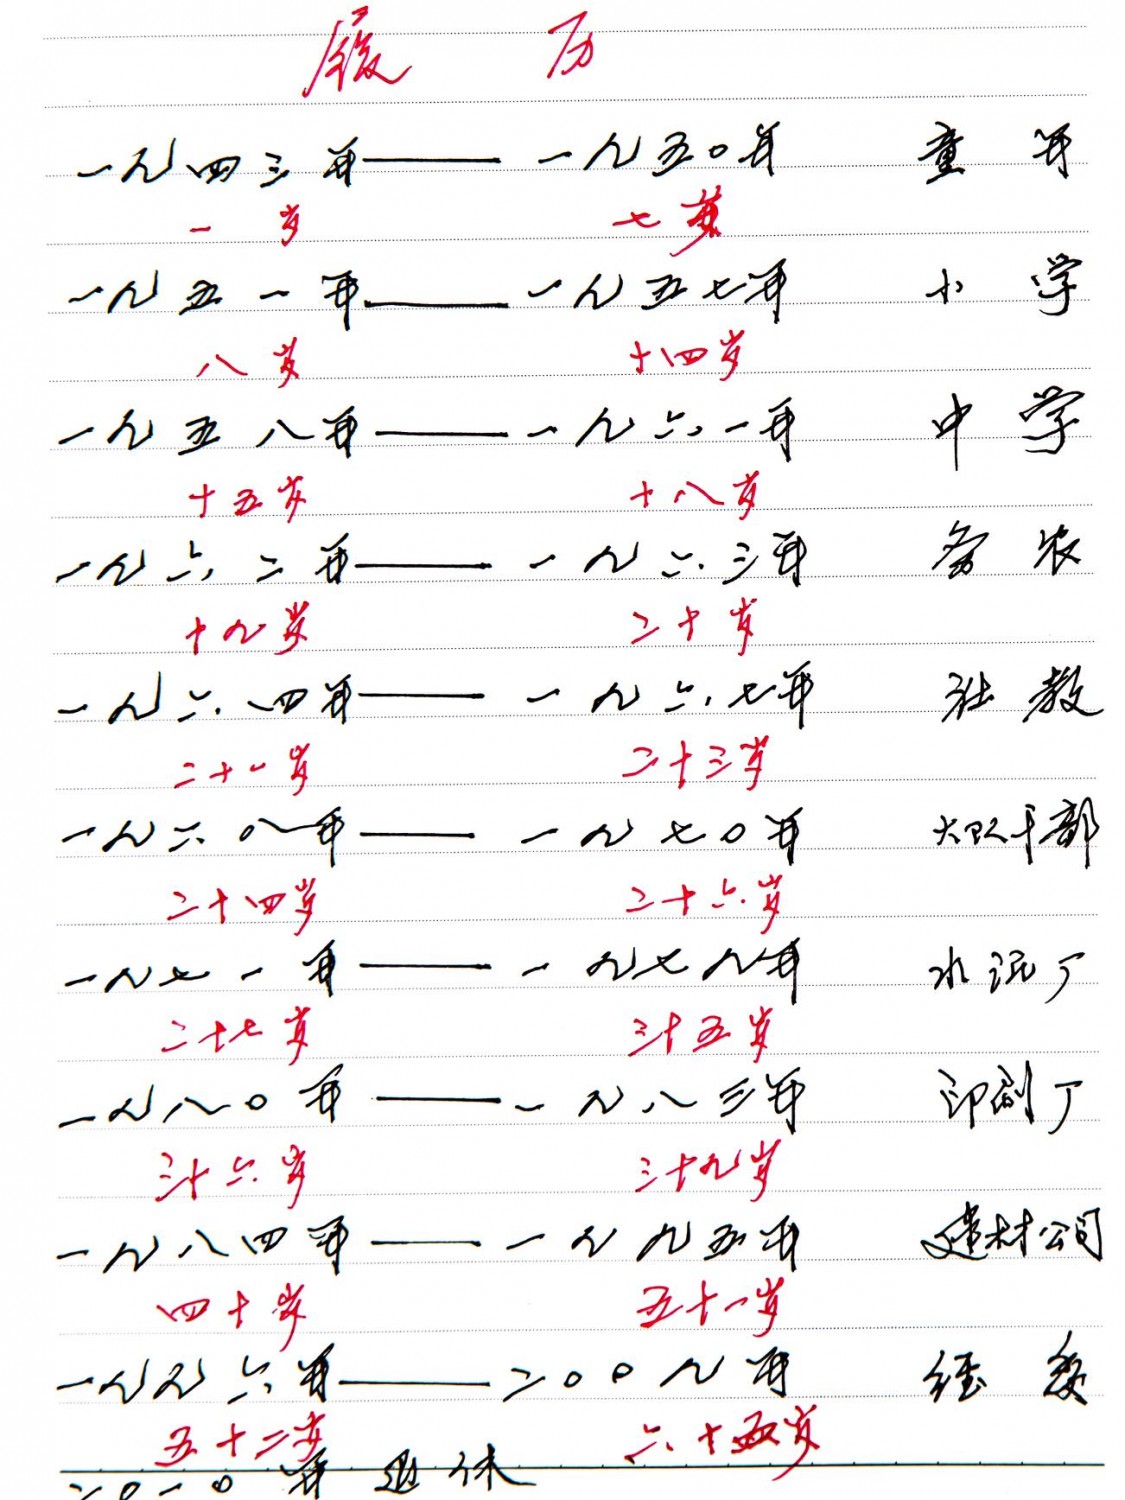 履历
一九四三年——一九五〇年 童年
一岁 七岁
一九五一年——一九五七年 小学
八岁 十四岁
一九五八年——一九六一年 中学
十五岁 十八岁
一九六二年——一九六三年 务农
十九岁 二十岁
一九六四年——一九六七年 社教
二十一岁 二十三岁
一九六八年——一九七〇年 大队干部
二十四岁 二十六岁
一九七一年——一九七九年 水泥厂
二十七岁 三十五岁
一九八〇年——一九八三年 印刷厂
三十六岁 三十九岁
一九八四年——一九九五年 建材公司
四十岁 五十一岁
一九九六年——二〇〇九年 经委
五十二岁 六十五岁
二〇一〇年退休